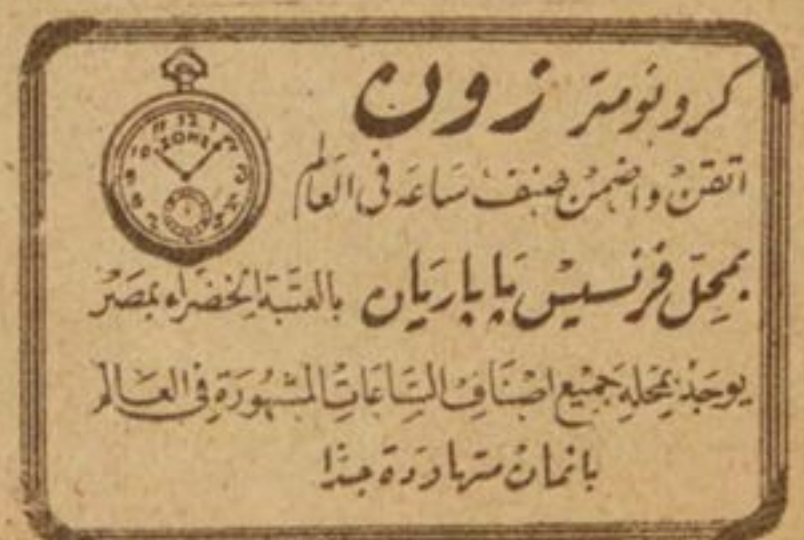 كرونومتر زون
اتقن واضمن صنف ساعه فى العالم
بمحل فرنسيس پاپازيان بالعتبة الخضراء بمصر
يوجد بمحله جميع اصناف الساعات المشهورة فى العالم
باثمان متهاودة جدًا
ZONE
11 12 1